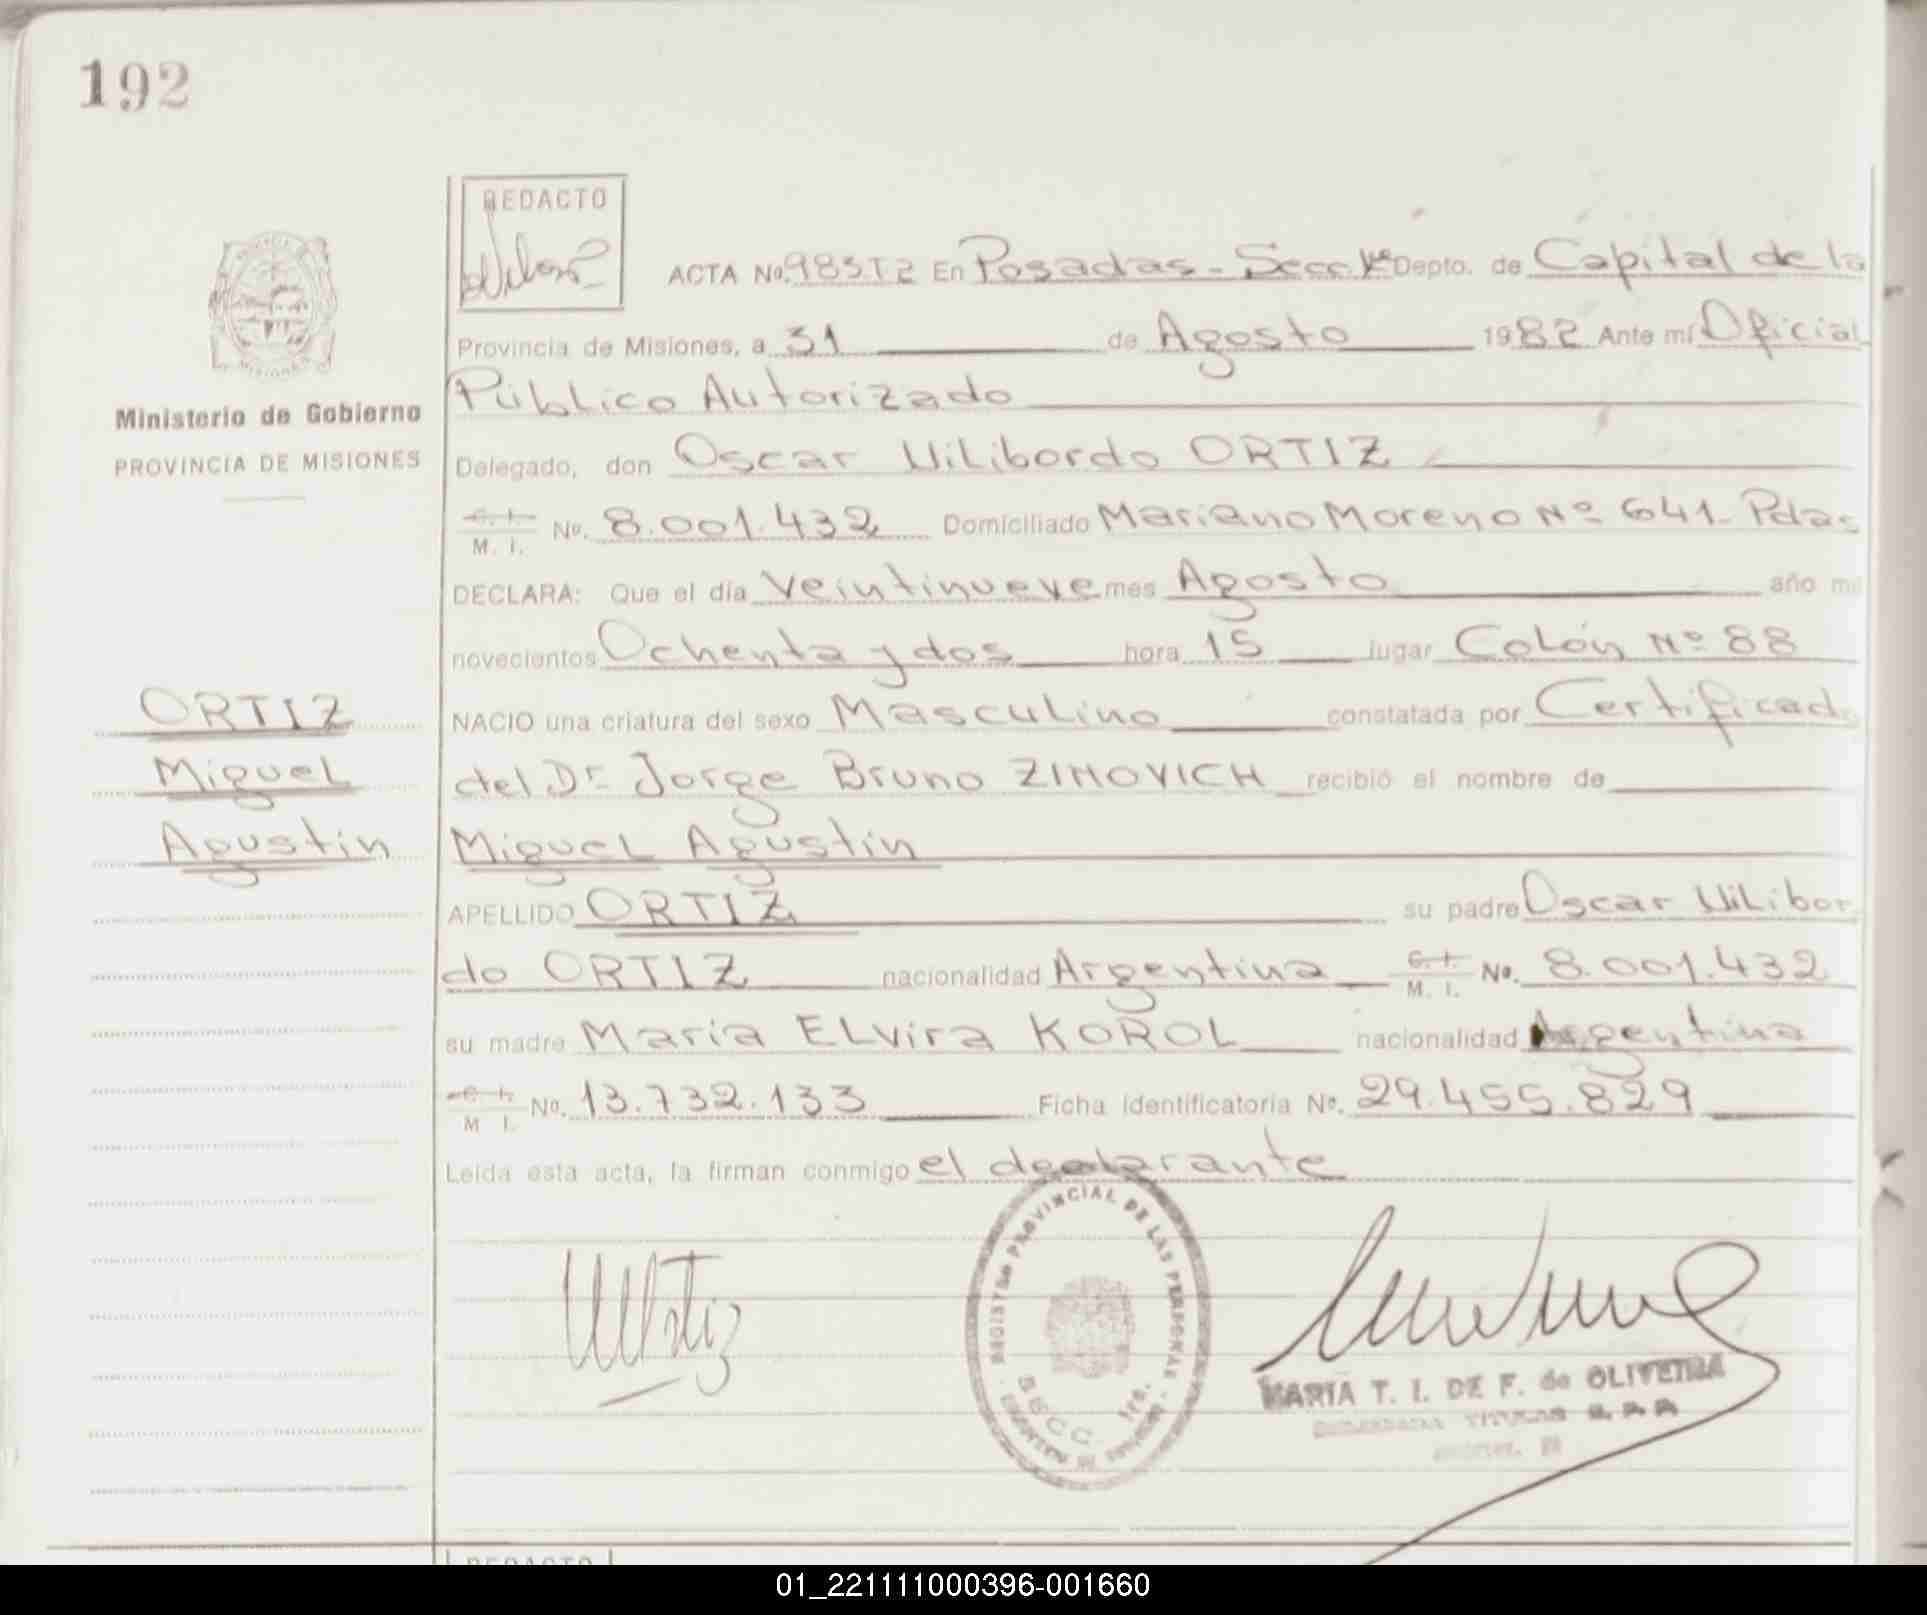 192
REDACTO
ACTA No. 983T2 En Posadas - Secc. 1ª Depto. de Capital de la
Provincia de Misiones, a 31 de Agosto 1982 Ante mí Oficial
Público Autorizado
Ministerio de Gobierno
PROVINCIA DE MISIONES
Delegado, don Oscar Wilibordo ORTIZ
C. I.
M. I. No. 8.001.432 Domiciliado Mariano Moreno Nº 641- Pdas
DECLARA: Que el día Veintinueve mes Agosto año mil
novecientos Ochenta y dos hora 15 lugar Colón Nº 88
NACIO una criatura del sexo Masculino constatada por Certificado
del Dr. Jorge Bruno ZIMOVICH recibió el nombre de
Miguel Agustin
ORTIZ
Miguel
Agustin
APELLIDO ORTIZ su padre Oscar Wilibor
do ORTIZ nacionalidad Argentina C. I.
M. I. No. 8.001.432
su madre Maria Elvira KOROL nacionalidad Argentina
C. I.
M I. No. 13.732.133 Ficha identificatoria No. 29.455.829
Leída esta acta, la firman conmigo el declarante
REGISTRO PROVINCIAL DE LAS PERSONAS
SECC. 1ra.
MARIA T. I. DE F. de OLIVEIRA
REDACTO
01_221111000396-001660